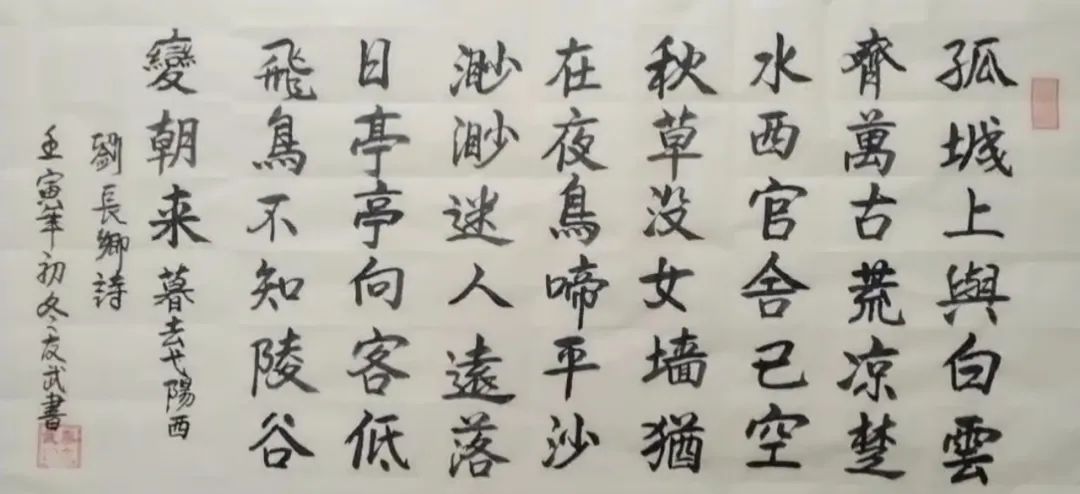 孤城上與白雲
齊萬古荒凉楚
水西官舍已空
秋草没女墙猶
在夜鳥啼平沙
渺渺迷人遠落
日亭亭向客低
飛鳥不知陵谷
變朝来暮去弋陽西
劉長卿詩
壬寅年初冬友武書